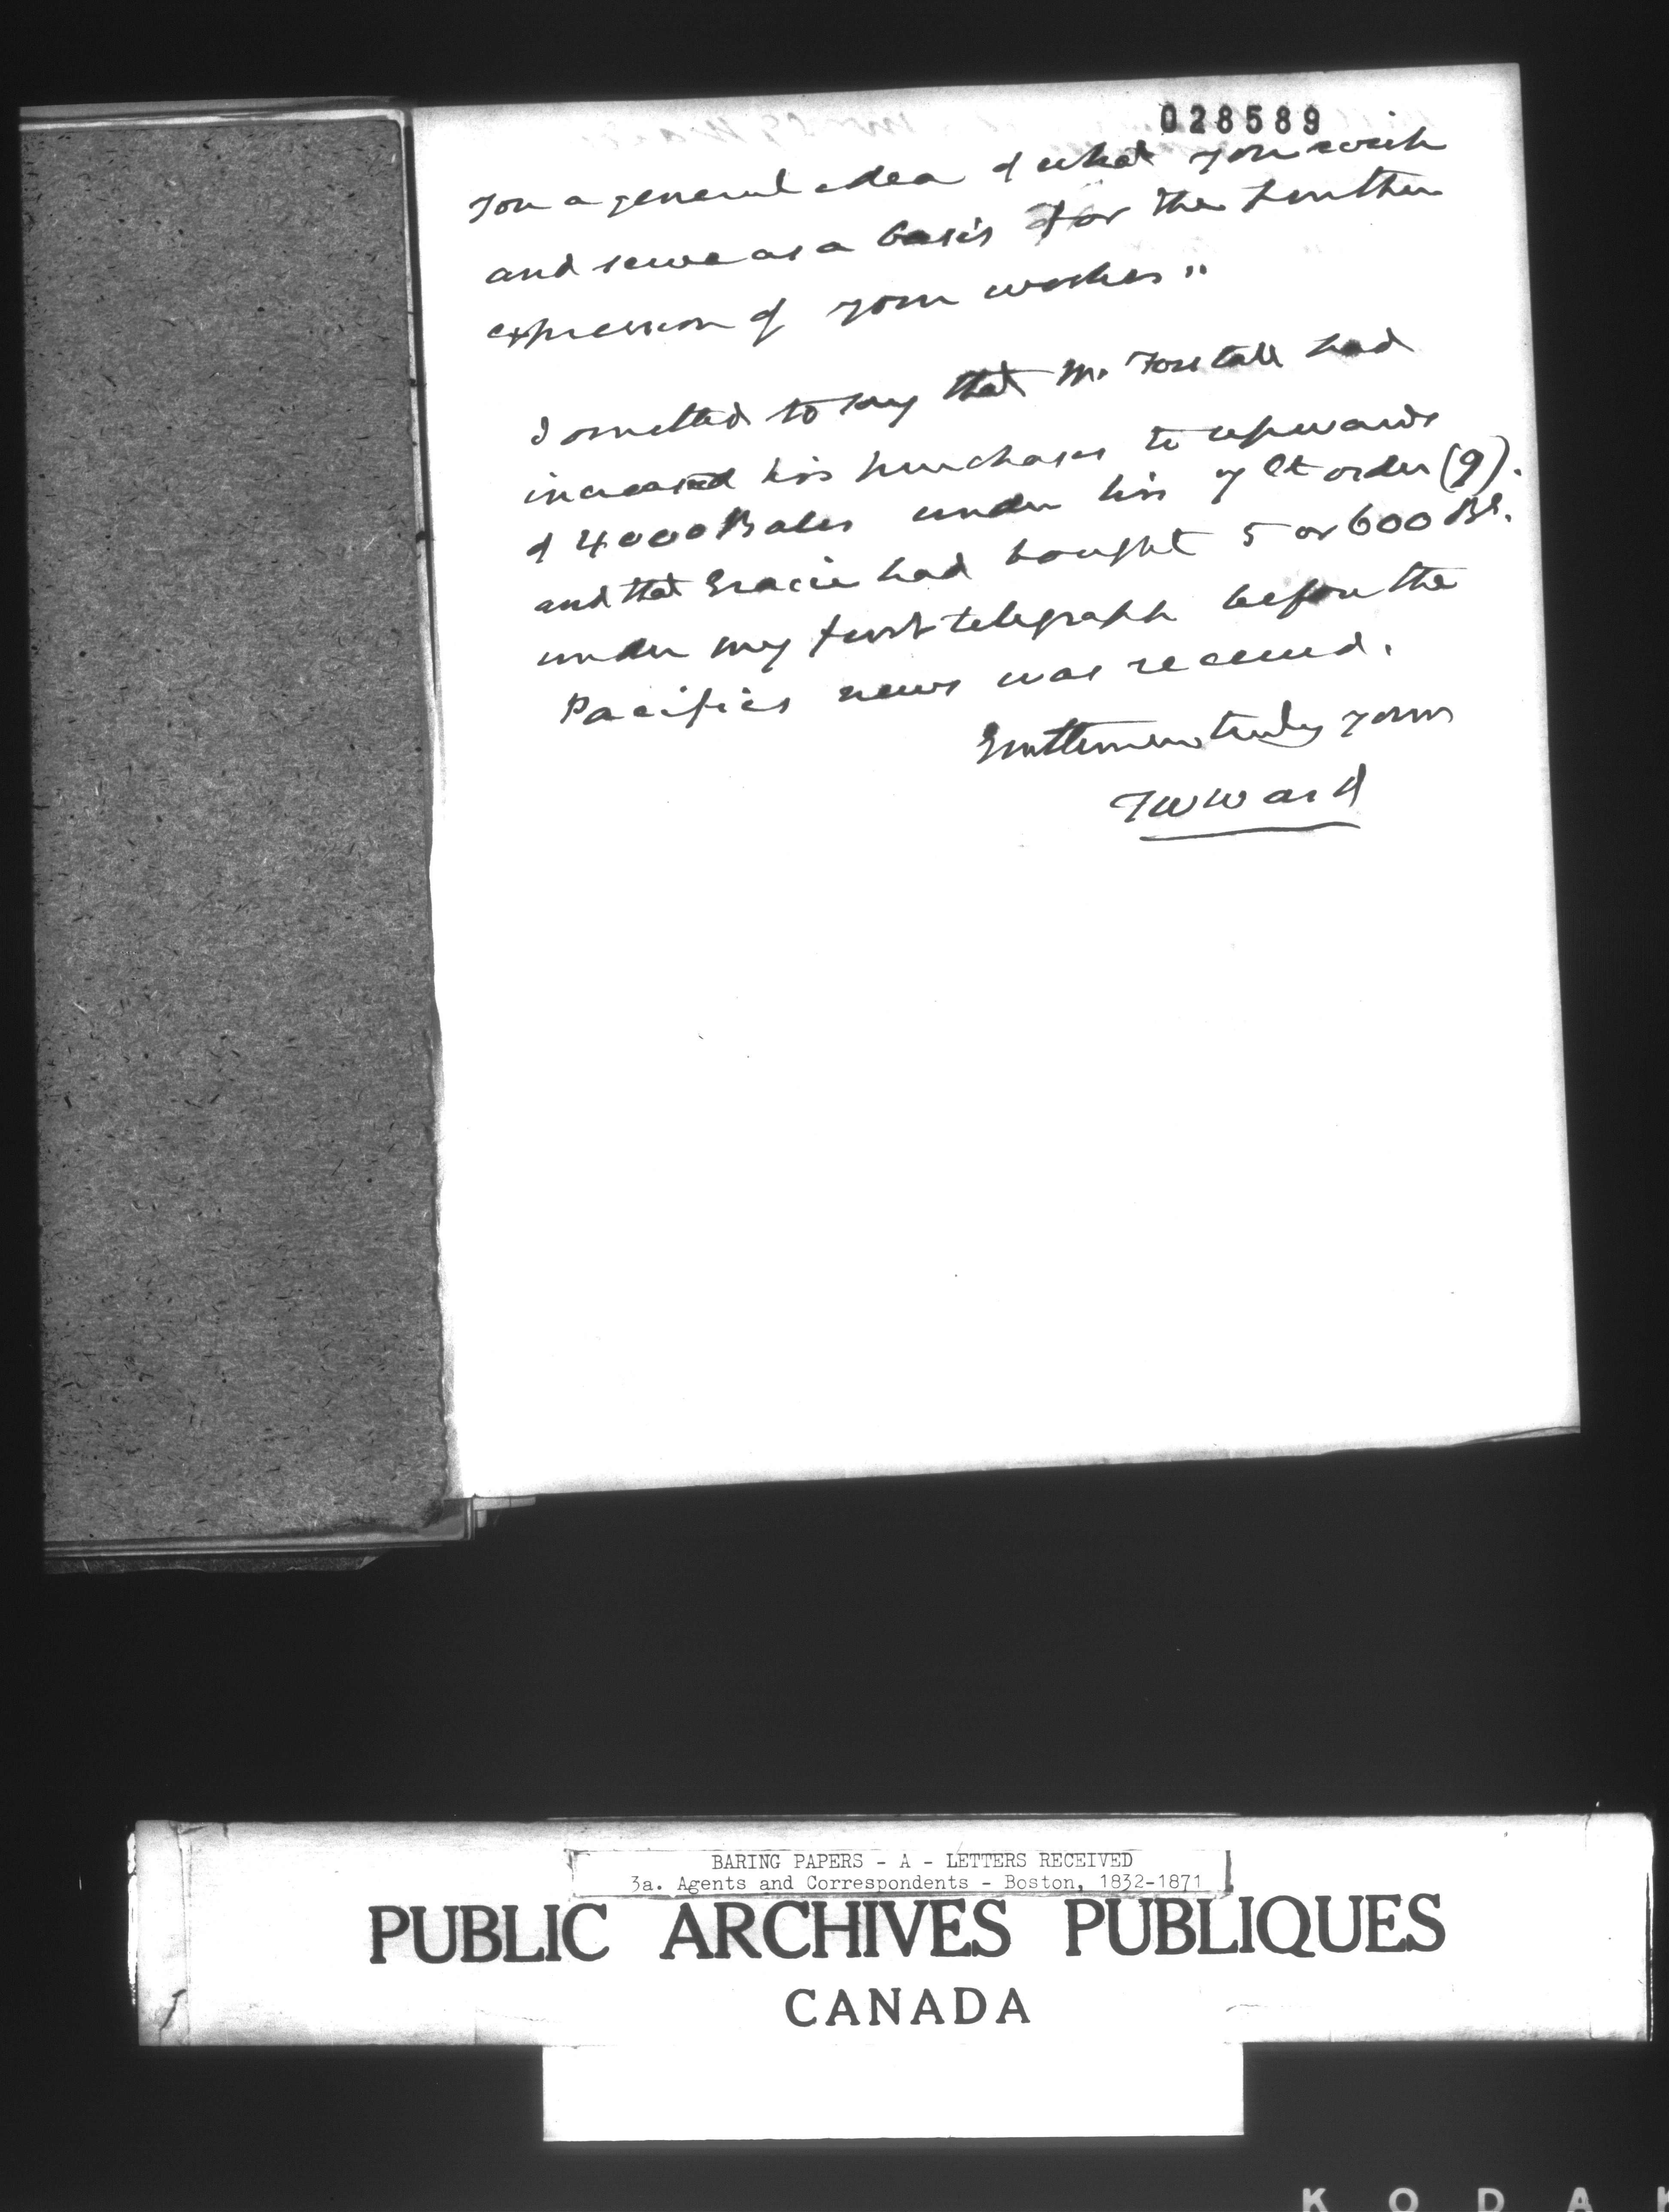 028589
you a general idea of what you wish
and serve as a basis for the further
expression of your wishes"
I omitted to say that Mr Forstall had
increased his purchases to upwards
of 4000 Bales under his 7 Ct order (9).
and that Gracie had bought 5 or 600 Bs.
under my first telegraph before the
Pacifics news was received.
Gentlemen truly yours
TWWard
BARING PAPERS - A - LETTERS RECEIVED
3a. Agents and Correspondents - Boston, 1832-1871
PUBLIC ARCHIVES PUBLIQUES
CANADA
KODAK